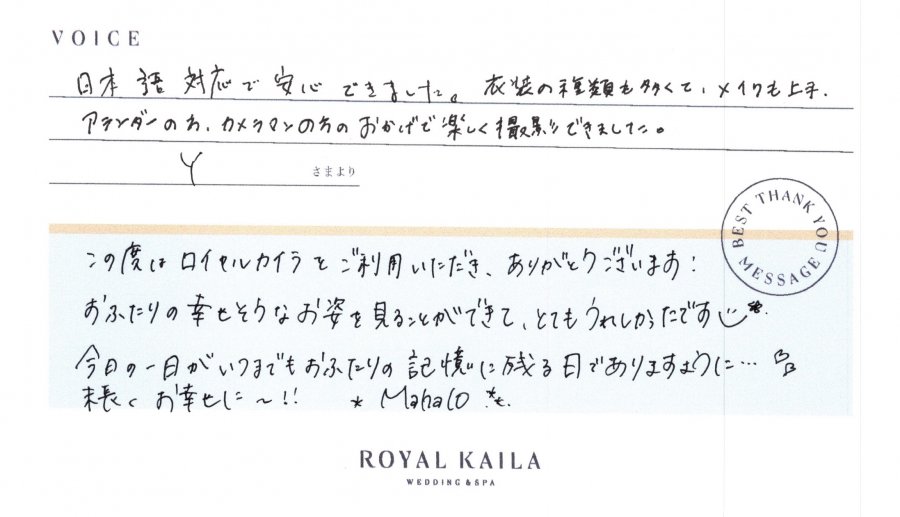 VOICE
日本語対応で安心できました。衣装の種類も多くて、メイクも上手、
アテンダーの方、カメラマンの方のおかげで楽しく撮影できました。
Y さまより
BEST THANK YOU MESSAGE
この度はロイヤルカイラをご利用いただき、ありがとうございます!
おふたりの幸せそうなお姿を見ることができて、とてもうれしかったです
今日の一日がいつまでもおふたりの記憶に残る日でありますように…
末長くお幸せに〜!! * Mahalo
ROYAL KAILA
WEDDING & SPA